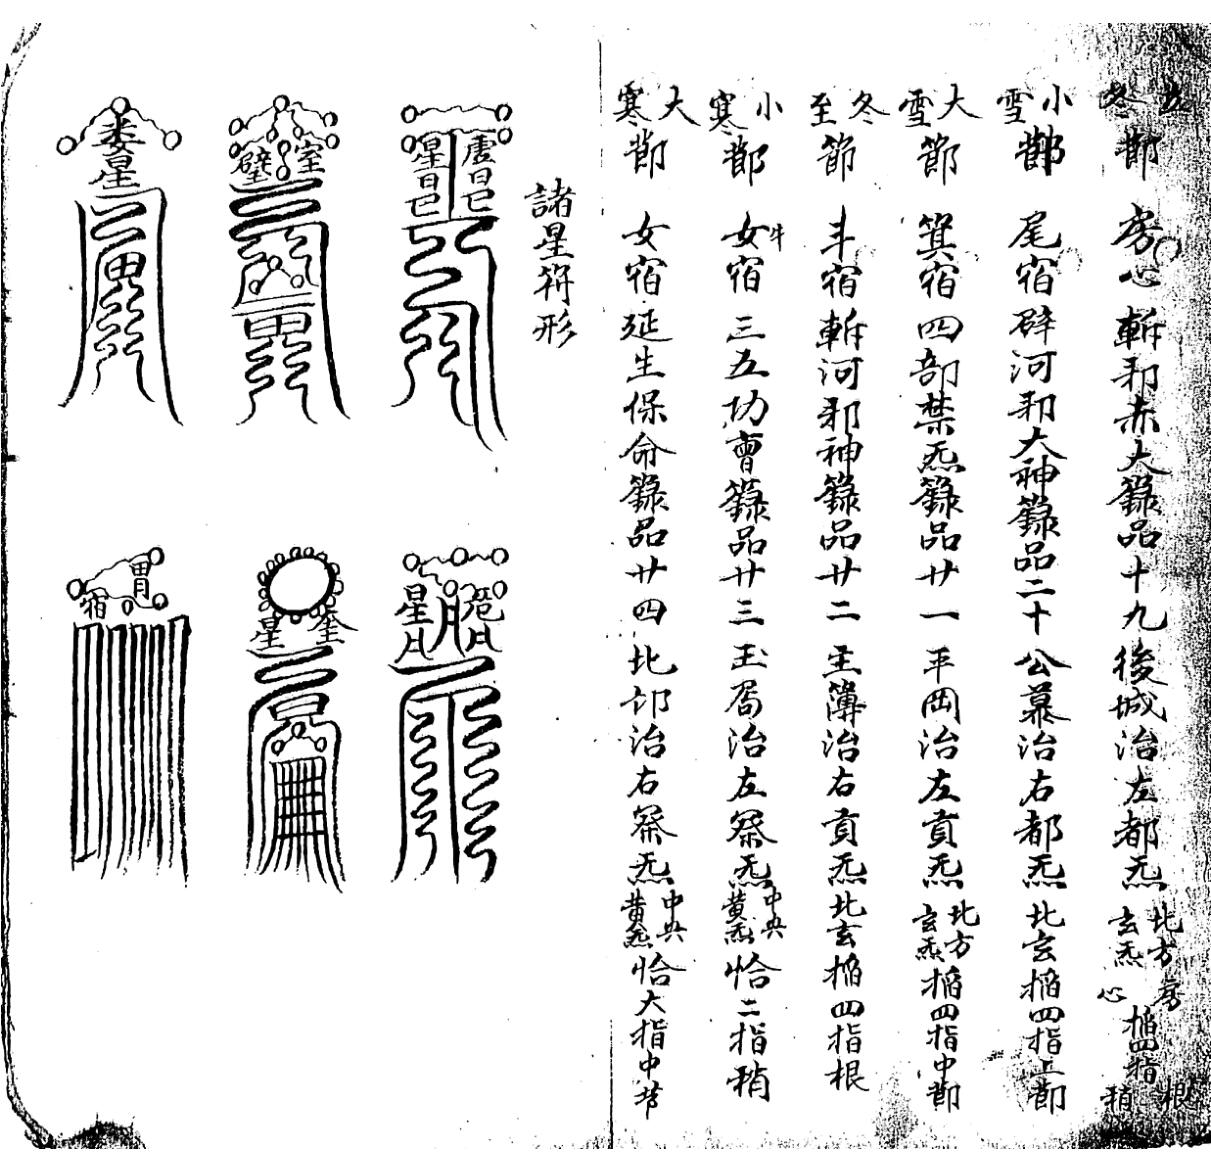 立冬節 房心 斬邪赤大籙品十九後城治左都炁 北方玄炁 房心 掐四指根稍
小雪節 尾宿 辟河邪大神籙品二十公慕治右都炁北玄掐四指上節
大雪節 箕宿四部禁炁籙品廿一平岡治左貢炁 北方玄炁 掐四指中節
冬至節 斗宿斬河邪神籙品廿二主簿治右貢炁北玄掐四指根
小寒節 牛女宿三五功曹籙品廿三玉局治左察炁 中央黄炁 恰二指稍
大寒節 女宿延生保命籙品廿四北邙治右察炁 中央黄炁 恰大指中節
諸星符形
星日巳日巳
室壁
婁星
星月日
奎星
胃宿